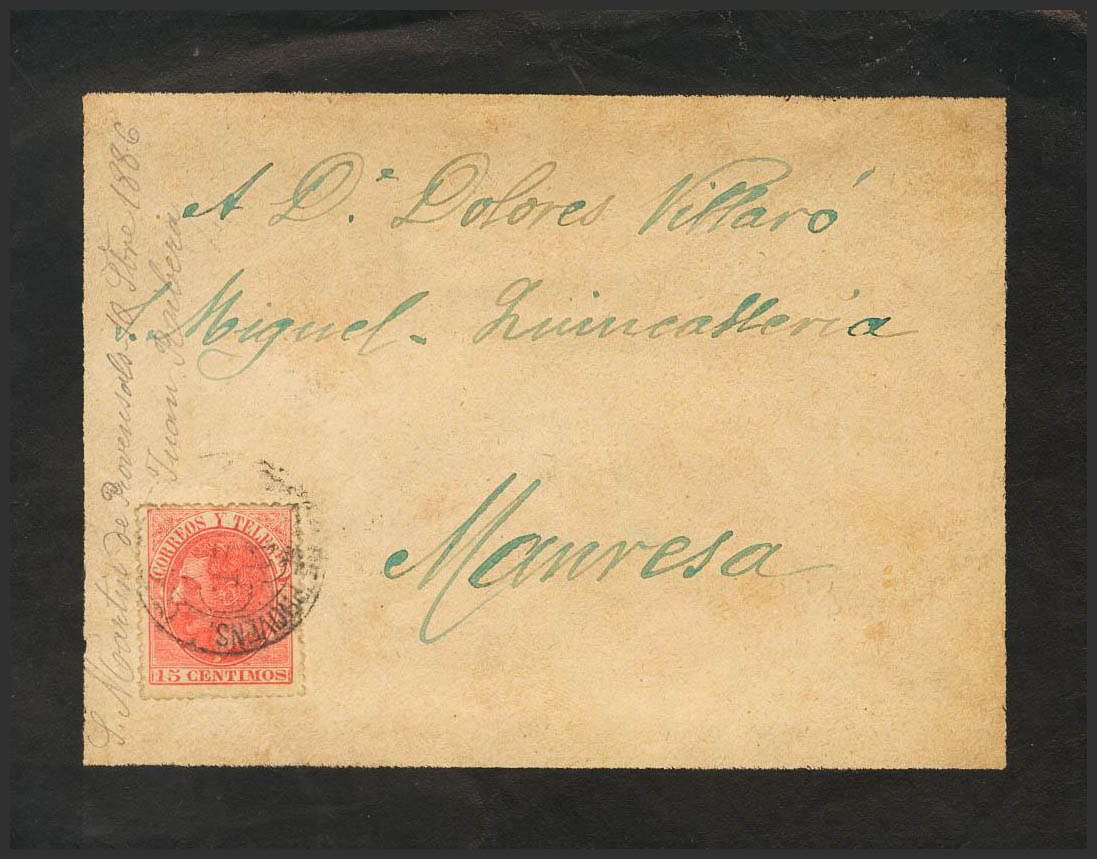 A D.ª Dolores Villaró
S. Miguel - Quincallería
Manresa
S. Martin de Provensals 18 Sbre 1886
Juan Barbera
CORREOS Y TELEG
15 CENTIMOS
PROVENS.